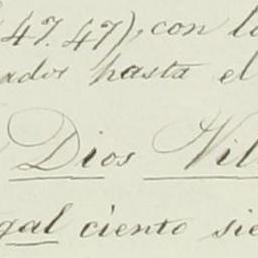 47.47), con l
ados hasta el
Dios Vil
gal ciento sie